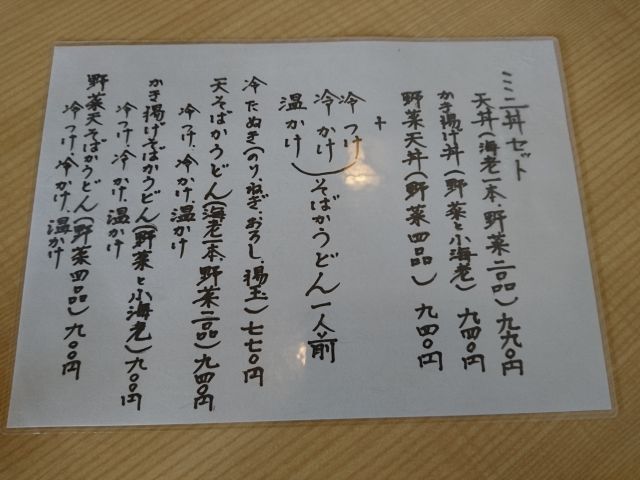 ミニ丼セット
天丼(海老一本、野菜二品)九九〇円
かき揚げ丼(野菜と小海老)九四〇円
野菜天丼(野菜四品)九四〇円
+
冷つけ
冷かけ
温かけ
そばかうどん一人前
冷たぬき(のり、ねぎ、おろし、揚玉)七七〇円
天そばかうどん(海老一本野菜二品)九四〇円
冷つけ、冷かけ、温かけ
かき揚げそばかうどん(野菜と小海老)九〇〇円
冷つけ、冷かけ、温かけ
野菜天そばかうどん(野菜四品)九〇〇円
冷つけ、冷かけ、温かけ